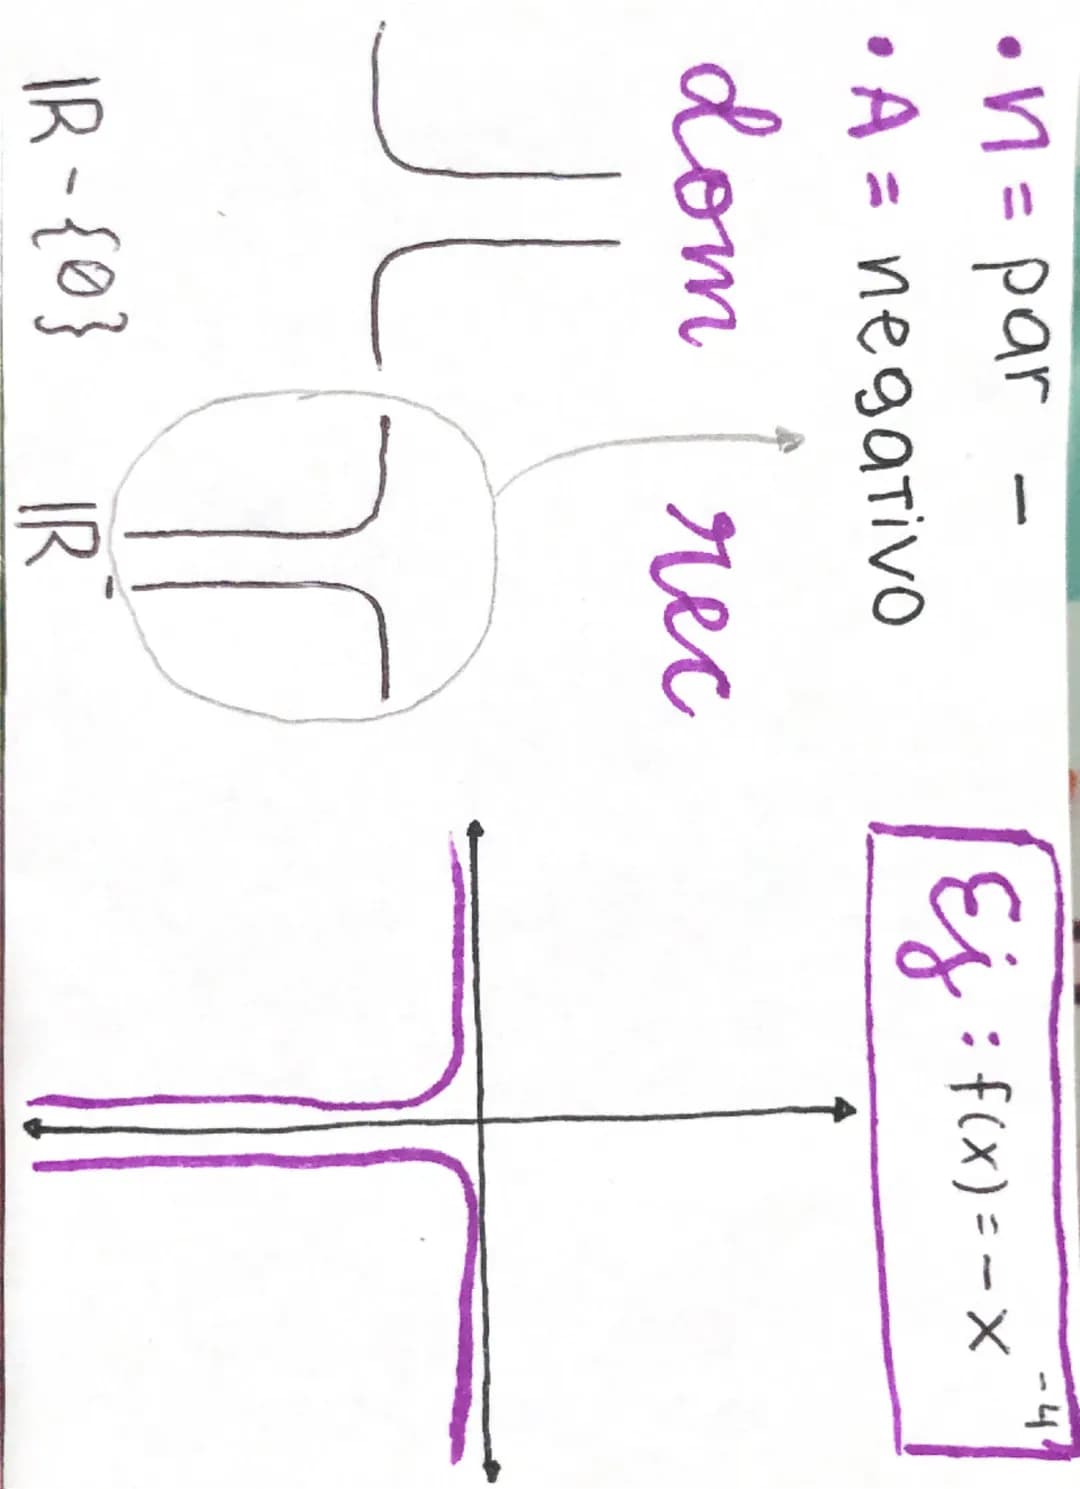 • n = par -
• A = negativo
dom rec
IR - {0} IR⁻
Ej : f(x) = - x⁻⁴